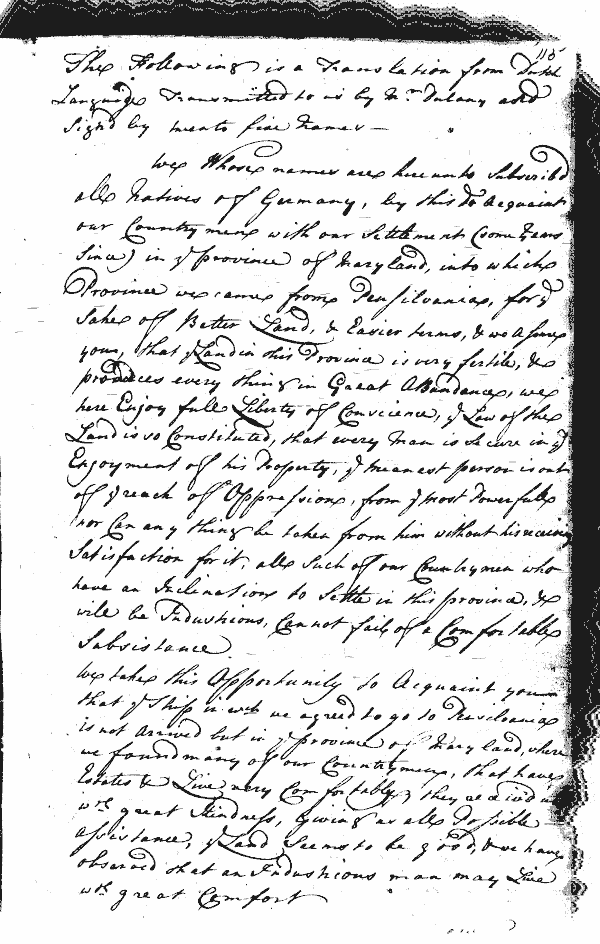 115
The Following is a Translation from Dutch
Language Transmitted to us by Mr. Dulany and
Sign'd by twenty five Names —
We Whose names are hereunto Subscrib'd
all Natives of Germany, by this do Acquaint
our Countrymen with our Settlement (some Years
Since) in ye province of Maryland, into which
Province we came from Pensilvania, for ye
Sake of Better Land, & Easier terms, & we assure
you, that ye Land in this Province is very fertile, &
produces every thing in Great Abundance, we
here Enjoy full Liberty of Conscience, ye Law of the
Land is so Constituted, that every man is Secure in ye
Enjoyment of his Property, ye meanest person is out
of ye reach of Oppression, from ye most Powerfull
nor Can any thing be taken from him without his receiving
Satisfaction for it, all Such of our Countrymen who
have an Inclination to Settle in this province, &
will be Industrious, Cannot fail of a Comfortable
Subsistance.
We take this Opportunity to Acquaint you
that ye Ship in wch we agreed to go to
is not arrived but in ye province of Maryland, where
we found many of our Countrymen, that have
Estates & Live very Comfortably, they receiv'd us
wth great Kindness, giving us all Possible
assistance, ye Land Seems to be good, & we have
observed that an Industrious man may Live
wth great Comfort